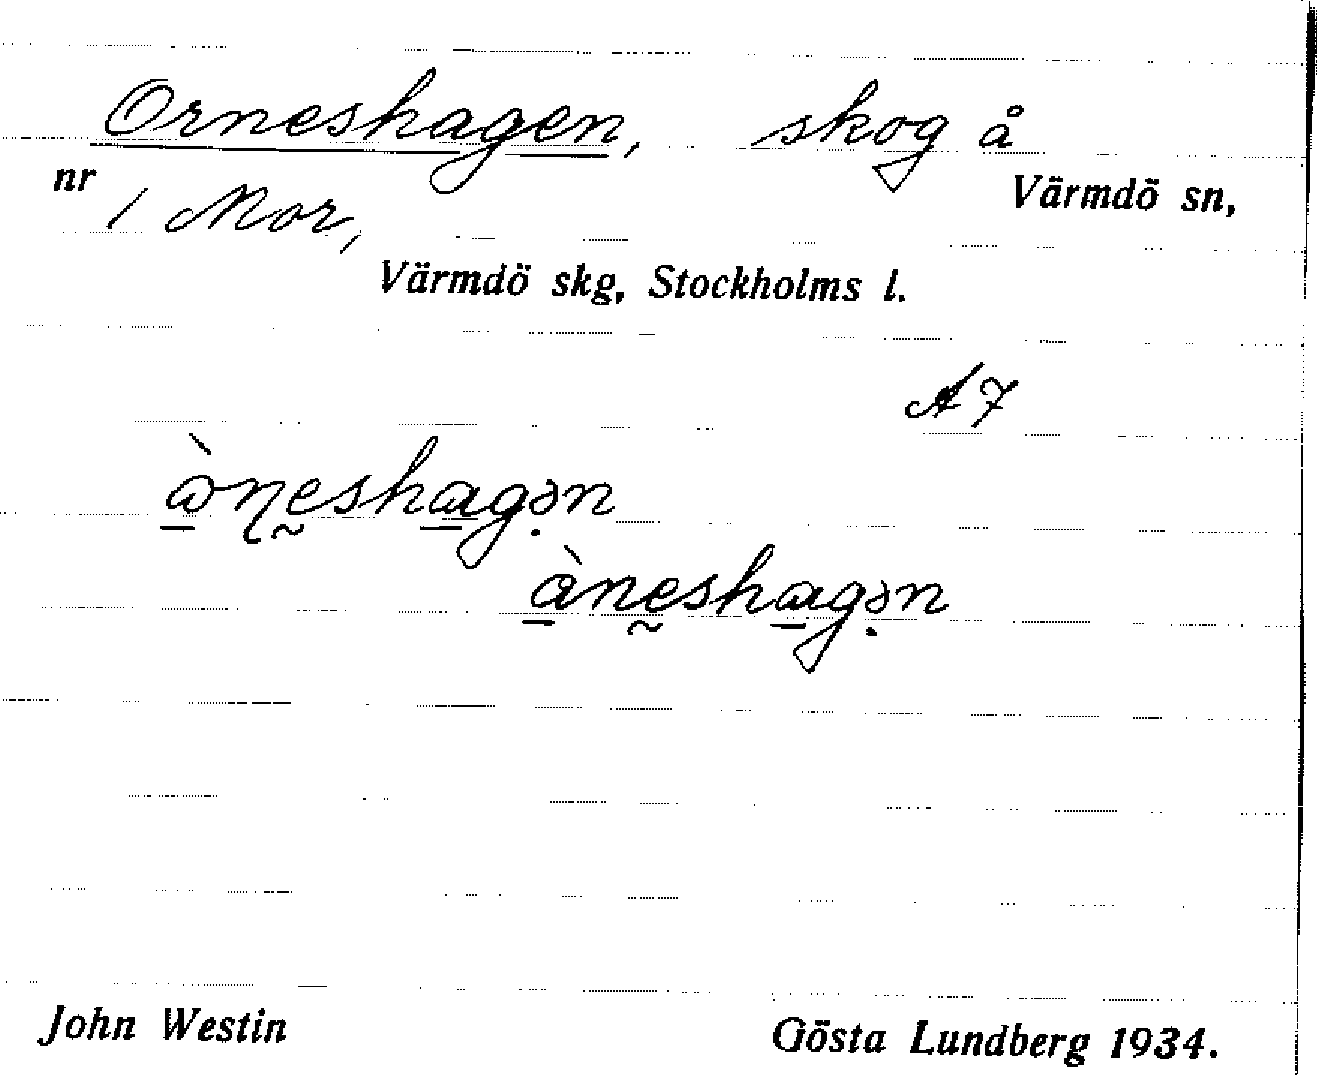 Orneshagen, skog å
nr 1 Mor, Värmdö sn,
Värmdö skg, Stockholms l.
A7
ὰƞḛshag̱ən
ànḛshagən
John Westin
Gösta Lundberg 1934.